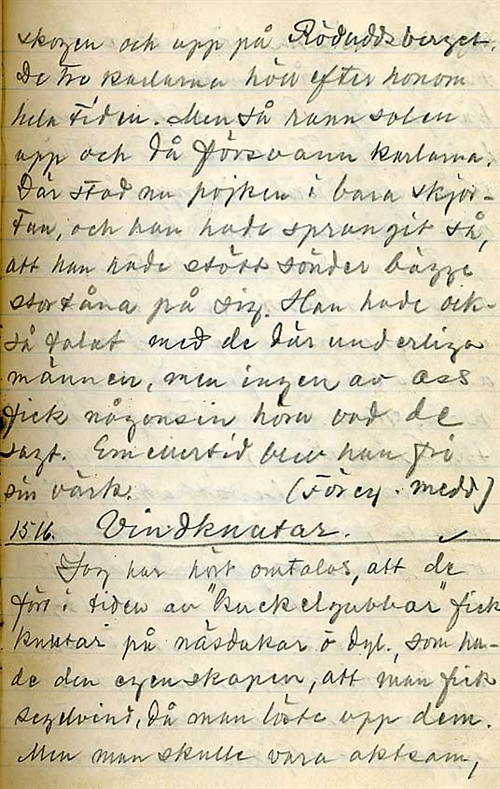 skogen och upp på Röduddsberget.
De tre karlarna höll efter honom
hela tiden. Men så rann solen
upp och då försvann karlarna.
Där stod nu pojken i bara skjor-
tan, och han hade sprungit så,
att han hade stött sönder bägge
stortåna på sig. Han hade ock-
så talat med de där underliga
männen, men ingen av oss
fick någonsin höra vad de
sagt. Emellertid blev han fri
sin värk. (Föreg. medd)
1516. Vindknutar. ✓
Jag har hört omtalas, att de
förr i tiden av "kuckelgubbar" fick
knutar på näsdukar o dyl., som ha-
de den egenskapen, att man fick
segelvind, då man löste upp dem.
Men man skulle vara aktsam,